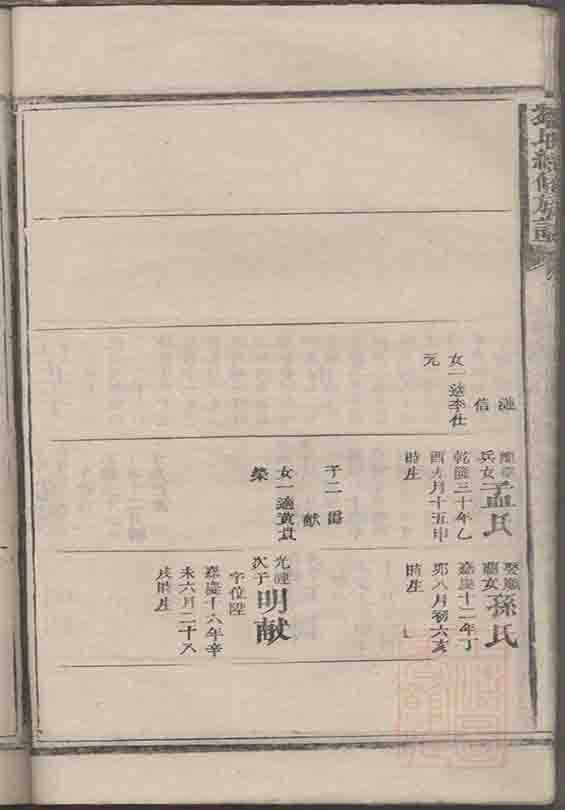 信
女一适李仕
元
孟氏
兵女
乾隆三十年乙
酉 月十五申
時生
子二
献
女一適黄貴
榮
孫氏
女
嘉慶十二年丁
卯八月初六亥
時生
明献
光
次子
字位陞
嘉慶十六年辛
未六月二十八
戌時生